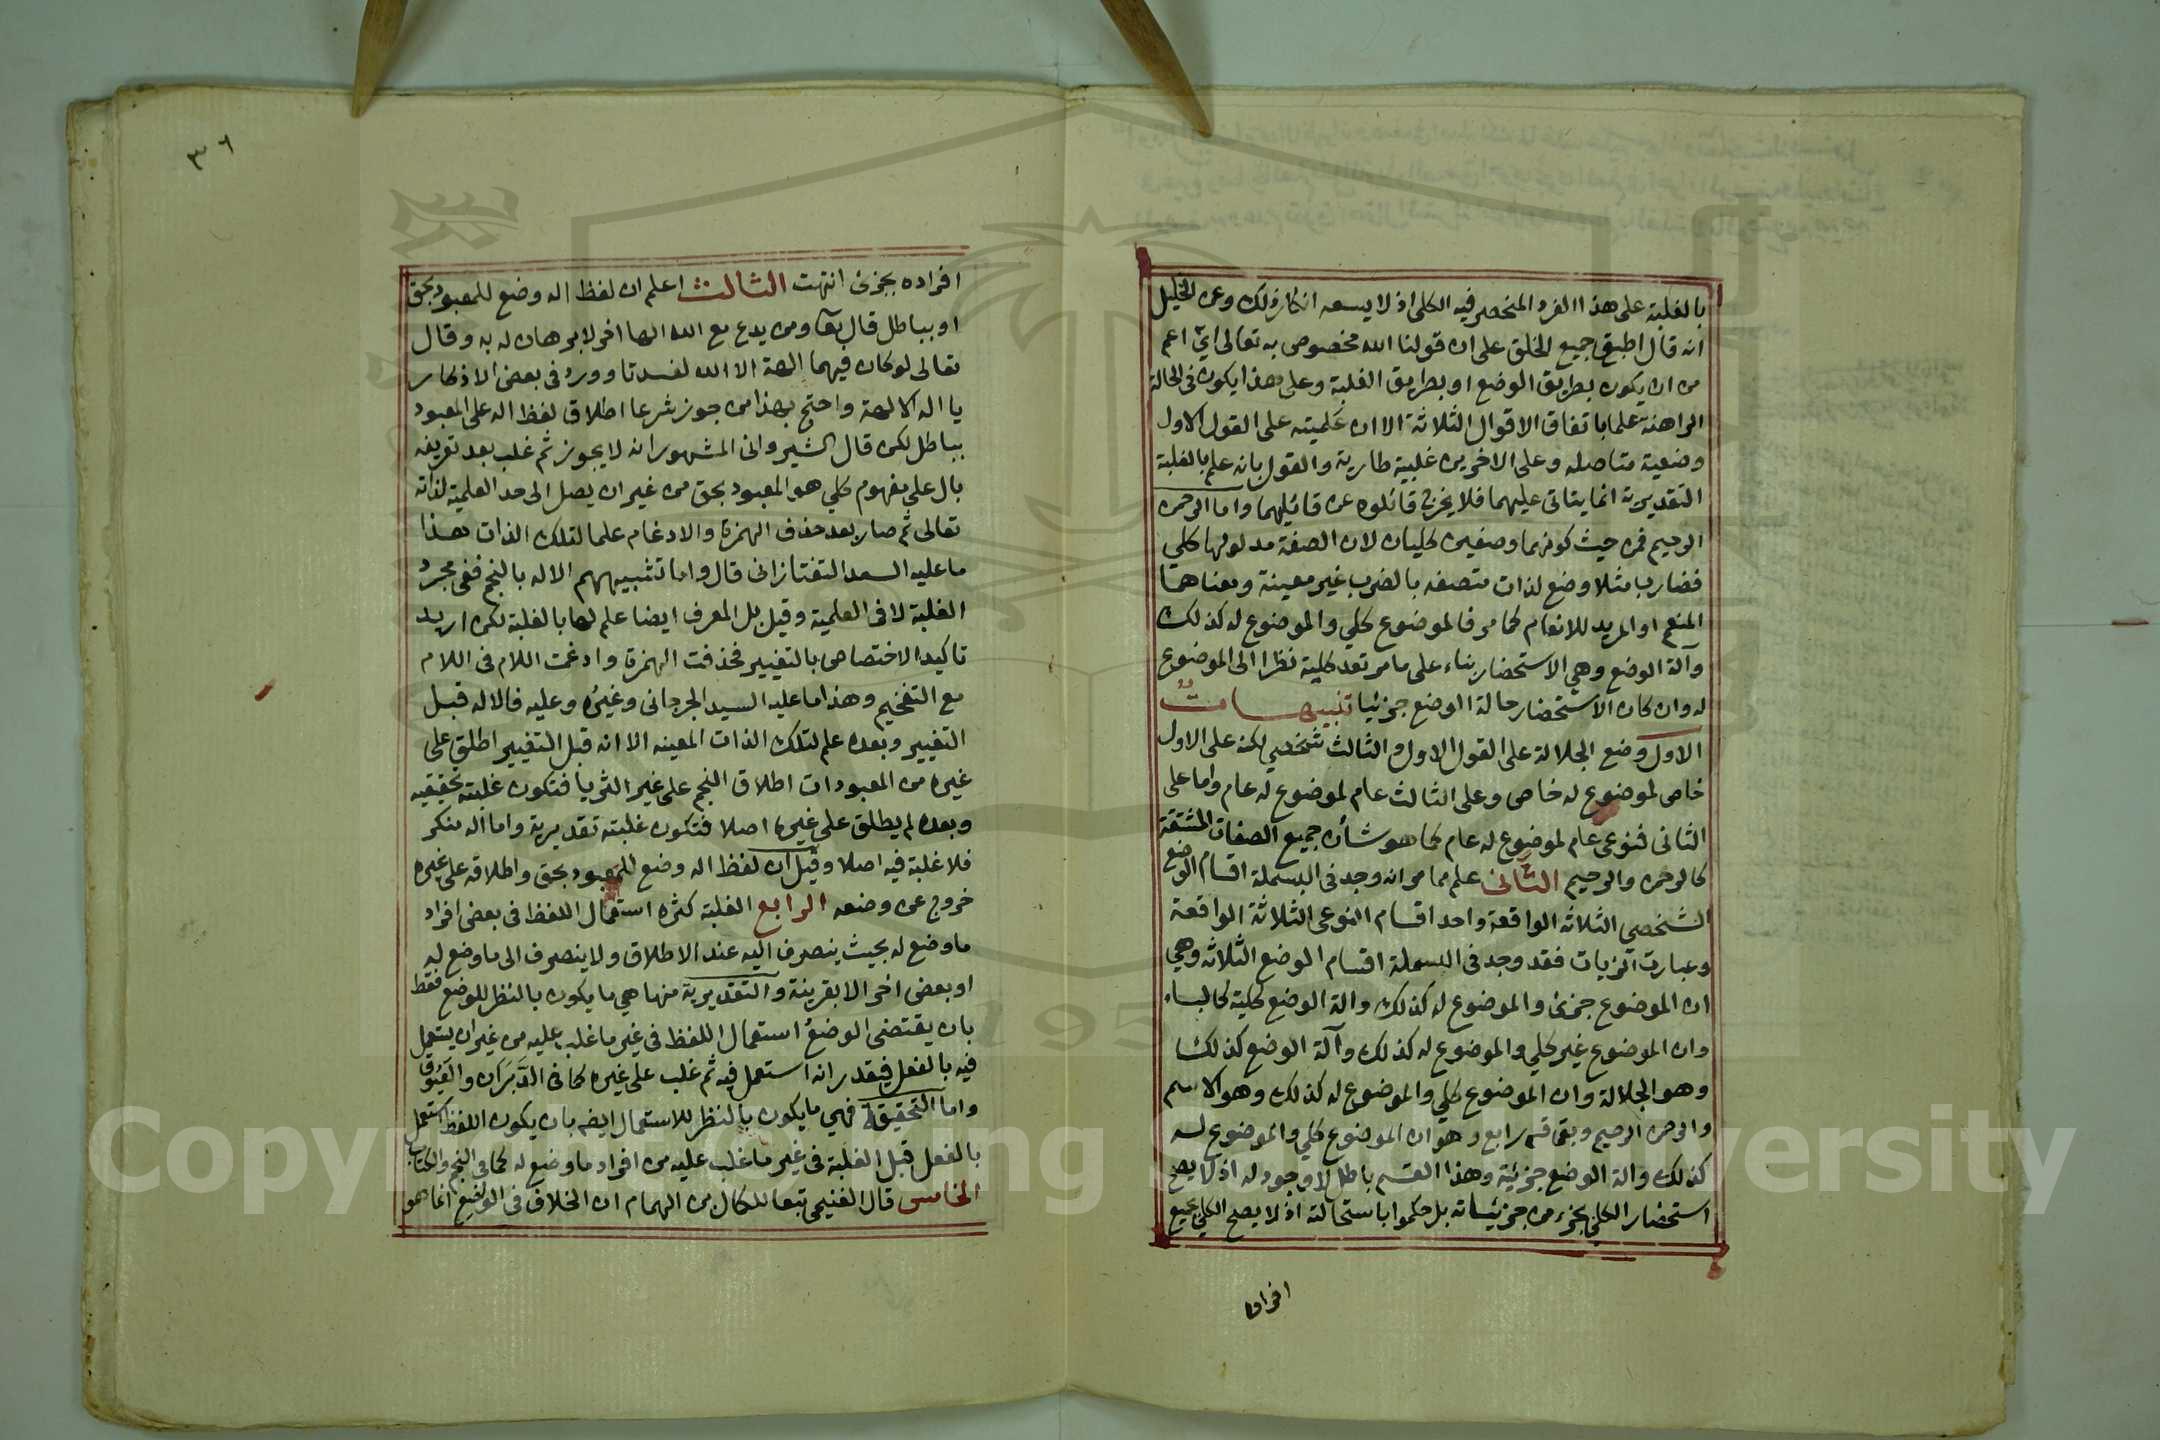 بالغلبة على هذا الفرد المنحصر فيه الكلى اذ لا يسعه انكار ذلك وعن الخليل
انه قال اطبق جميع الخلق على ان قولنا الله مخصوص به تعالى اى اعم
من ان يكون بطريق الوضع او بطريق الغلبة وعلى هذا يكون فى الحالة
الراهنة علما باتفاق الاقوال الثلاثة الا ان عَلَميته على القول الاول
وضعية متاصله وعلى الاخرين غلبية طارية والقول بانه علم بالغلبة
التقديرية انما يتاتى عليهما فلا يخرج قائلوه عن قائليهما واما الرحمن
الرحيم فمن حيث كونهما وصفين كليان لان الصفة مدلولها كلي
فضارب مثلا وضع لذات متصفه بالضرب غير معينة ومعناهما
المنعم او المريد للانعام كما مر فالموضوع كلي والموضوع له كذلك
وآلة الوضع وهي الاستحضار بناء على ما مر تعد كلية نظرا الى الموضوع
له وان كان الاستحضار حالة الوضع جزئيا تنبيهات
الاول وضع الجلالة على القول الاول والثالث شخصي لكنه على الاول
خاص لموضوع له خاص وعلى الثالث عام لموضوع له عام واما على
الثانى فنوعى عام لموضوع له عام كما هو شأن جميع الصفات المشتقة
كالرحمن والرحيم الثانى علم مما مر انه وجد فى البسملة اقسام الوضع
الشخصي الثلاثه الواقعة واحد اقسام النوعى الثلاثة الواقعة
وعبارت الزيات فقد وجد فى البسملة اقسام الوضع الثلاثه وهي
ان الموضوع جزئ والموضوع له كذلك والة الوضع كلية كالباء
وان الموضوع غير كلي والموضوع له كذلك وآلة الوضع كذلك
وهو الجلالة وان الموضوع كلي والموضوع له كذلك وهو الاسم
والرحمن الرحيم وبقى قسم رابع وهو ان الموضوع كلي والموضوع له
كذلك والة الوضع جزئية وهذا القسم باطل لا وجود له اذ لا يصح
استحضار الكلي بجزء من جزئياته بل حكموا باستحالته اذ لا يصح الكلي جميع
افراده
٣٦
افراده بجزئ انتهت الثالث اعلم ان لفظ اله وضع للمعبود بحق
او بباطل قال تعا ومن يدع مع الله الها اخر لا برهان له به وقال
تعالى لو كان فيهما الهة الا الله لفسدتا وورد فى بعض الاذكار
يا اله الالهة واحتج بهذا من جوز شرعا اطلاق لفظ اله على المعبود
بباطل لكن قال الشيروانى المشهور انه لا يجوز ثم غلب بعد تعريفه
بال على مفهوم كلي هو المعبود بحق من غير ان يصل الى حد العلمية لذاته
تعالى ثم صار بعد حذف الهمزة والادغام علما لتلك الذات هذا
ما عليه السعد التفتازانى قال واما تشبيههم الاله بالنجم ففى مجرد
الغلبة لا فى العلمية وقيل بل المعرف ايضا علم لها بالغلبة لكن اريد
تاكيد الاختصاص بالتغيير فحذفت الهمزة وادغمت اللام فى اللام
مع التفخيم وهذا ما عليه السيد الجرجانى وغيره وعليه فالاله قبل
التغيير وبعده علم لتلك الذات المعينه الا انه قبل التغيير اطلق على
غيره من المعبودات اطلاق النجم على غير الثريا فتكون غلبته تحقيقيه
وبعده لم يطلق على غيره اصلا فتكون غلبته تقديرية واما اله منكر
فلا غلبة فيه اصلا وقيل ان لفظ اله وضع للمعبود بحق واطلاقه على غيره
خروج عن وضعه الرابع الغلبة كثرة استعمال اللفظ فى بعض افراد
ما وضع له بحيث ينصرف اليه عند الاطلاق ولا ينصرف الى ما وضع له
او بعض اخر الا بقرينة والتقديرية منها هي ما يكون بالنظر للوضع فقط
بان يقتضى الوضعُ استعمال اللفظ فى غير ما غلب عليه من غير ان يستعمل
فيه بالفعل فيقدر انه استعمل فيه ثم غلب على غيره كما فى الدَّبَرَان والعَيُوق
واما التحقيقة فهي ما يكون بالنظر للاستعمال ايضه بان يكون اللفظ استعمل
بالفعل قبل الغلبة فى غير ما غلب عليه من افراد ما وضع له كما فى النجم والكتاب
الخامس قال الغنيمى تبعا للكمال بن الهمام ان الخلاف فى الوضع انما هو
Copyright © King Saud University
195